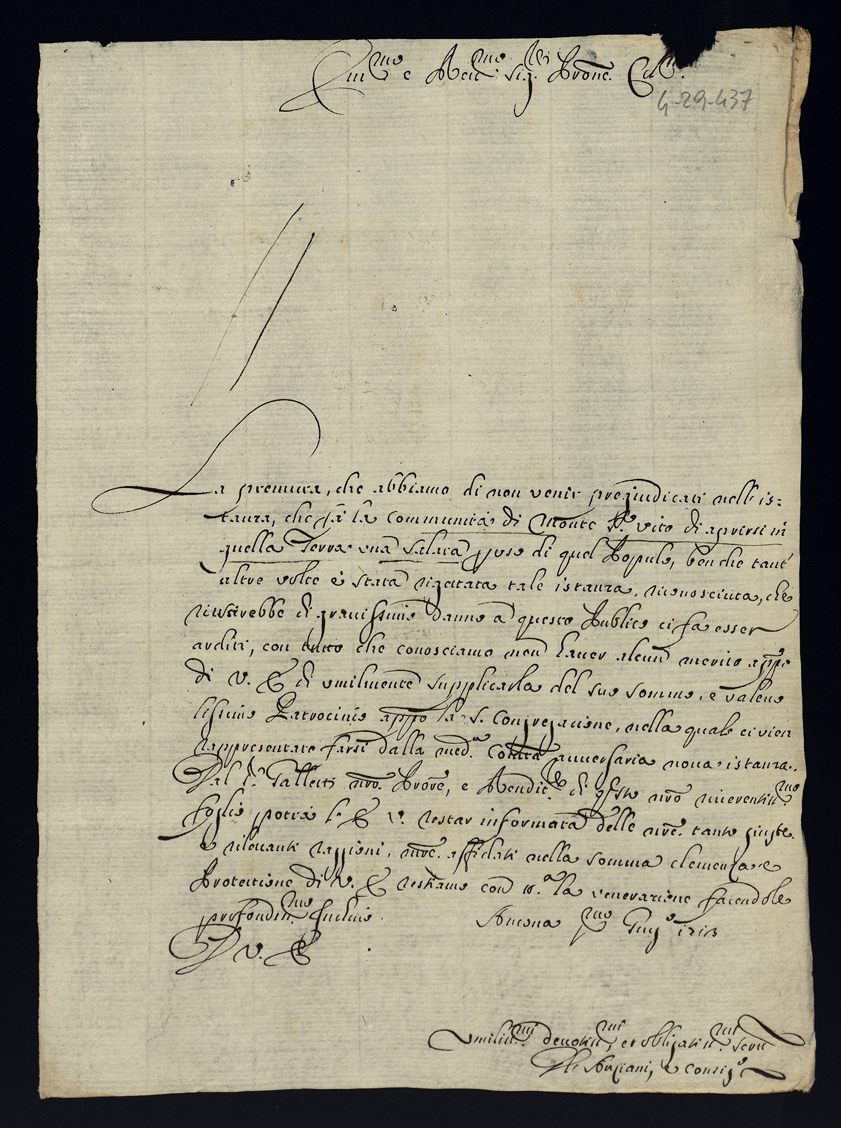 Em.mo e Rev.mo Sig. Sig. Prone. Col.mo
4-29-437
La premura, che abbiamo di non venir pregiudicati nell'is-
tanza, che fà la Communità di Monte S. Vito di aprirsi in
quella Terra una Salara p uso di quel Popolo, benche tant'
altre volte è stata rigettata tale istanza, riconosciuta, che
di gravissimo danno à questo Publico ci fa esser
arditi, con tutto che conosciamo non haver alcun merito appo
di V. E. di umilmente supplicarla del suo sommo, e valevo
lissimo Patrocinio appo la S. Congregazione, nella quale ci vien
rappresentato farsi dalla med.a Com.tà avversaria nova istanza.
Dal S. Galletti nro. Prone, e di qsto nro riverentis.mo
foglio potrà l'E. V. restar informata delle nre. tanto giuste
e rilevanti raggioni, nre. affidati nella somma clemenza, e
Protettione di V. E. restiamo con la venerazione facendole
profondis.mo Inchino. Ancona p.mo Giug.o 1713
D V. E.
Umilis.mi devotis.mi et obligatis.mi Serv.
Gli Anziani, e Consig.o